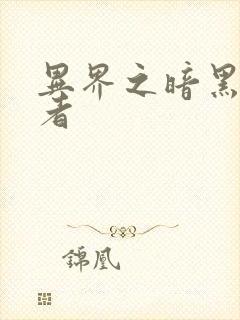 異界之暗黑
者
錦凰